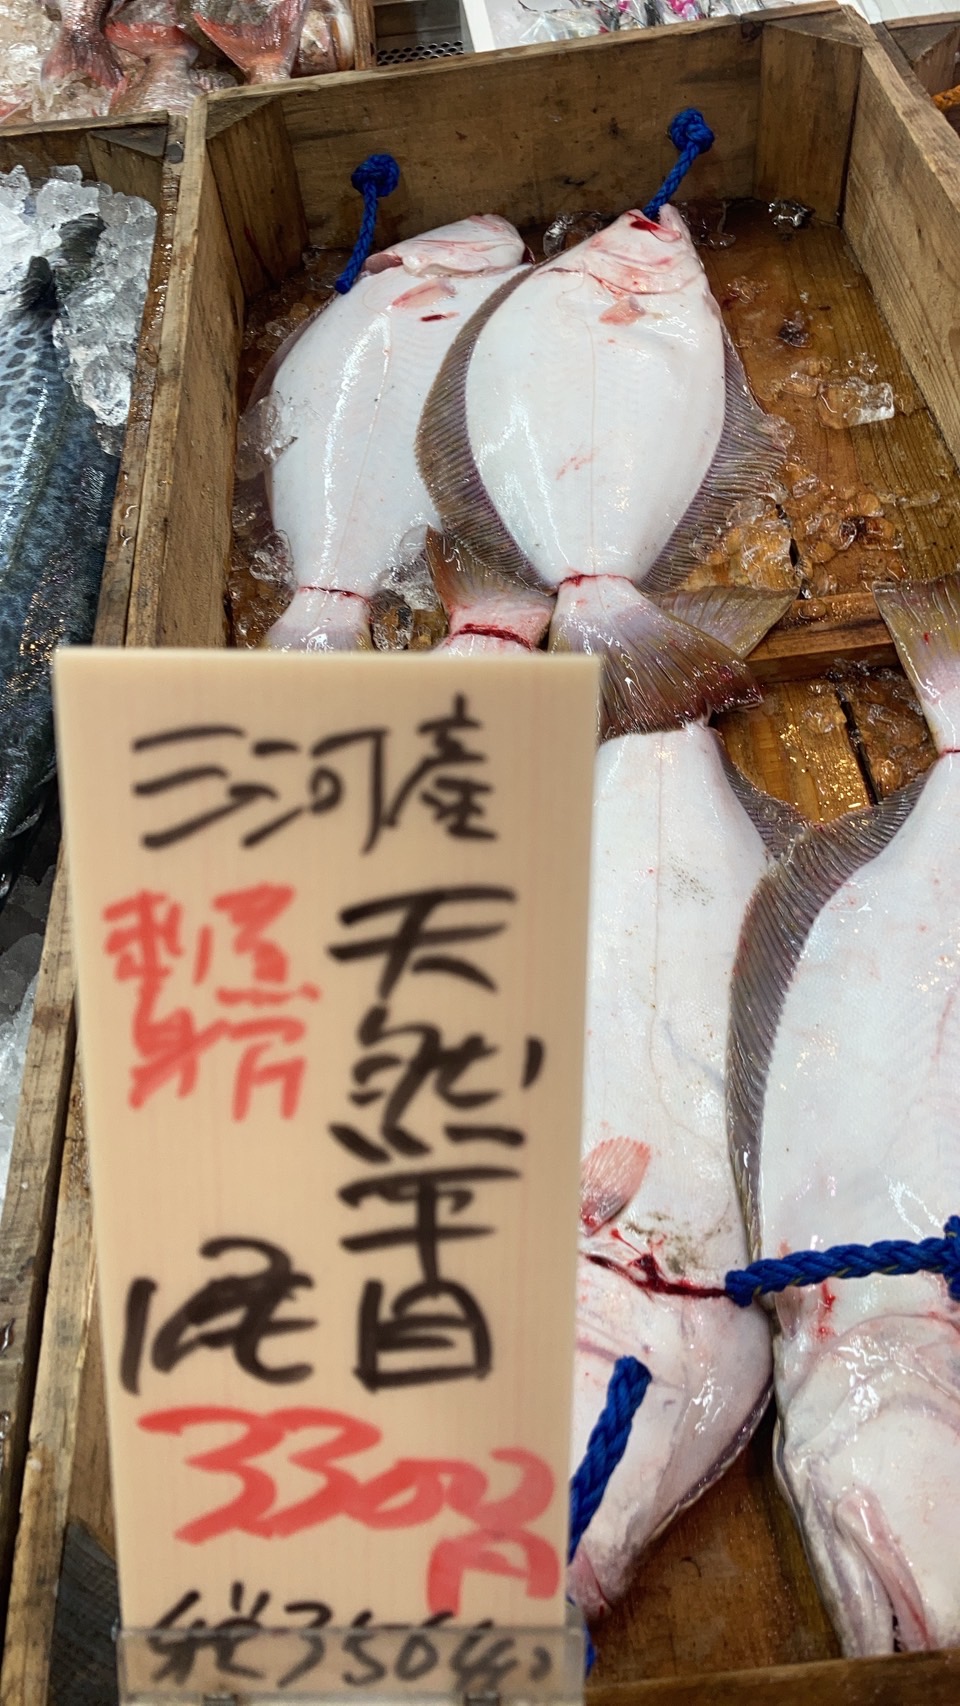 三河産
天然平目
刺身
1尾
3300円
税3564